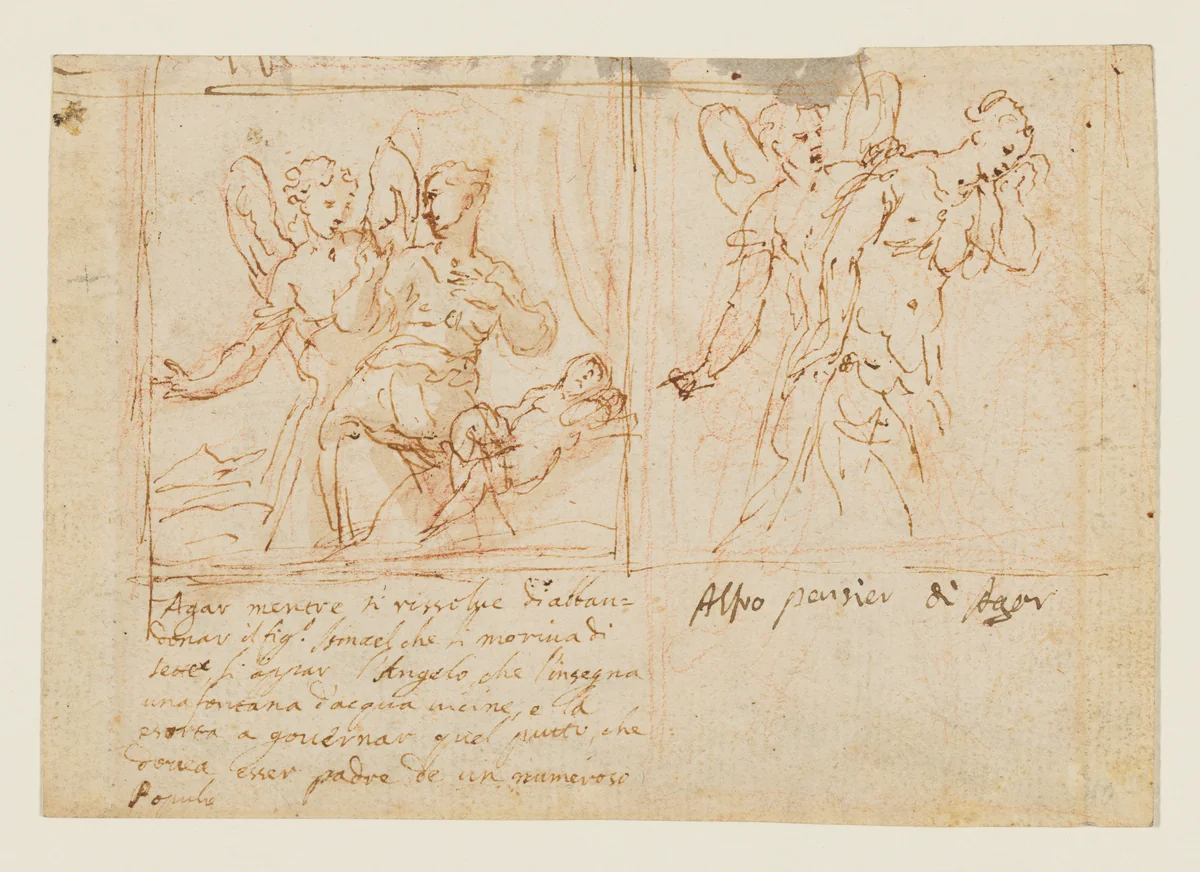 Agar mentre si rissolve d'abban=
donar il fig.º Ismael che si moriva di
sete li appar l'Angelo che l'insegna
una fontana d'acqua vicine, e la
esorta a governar quel putto, che
dovea esser padre de un numeroso
Populo
Altro pensier di Agar